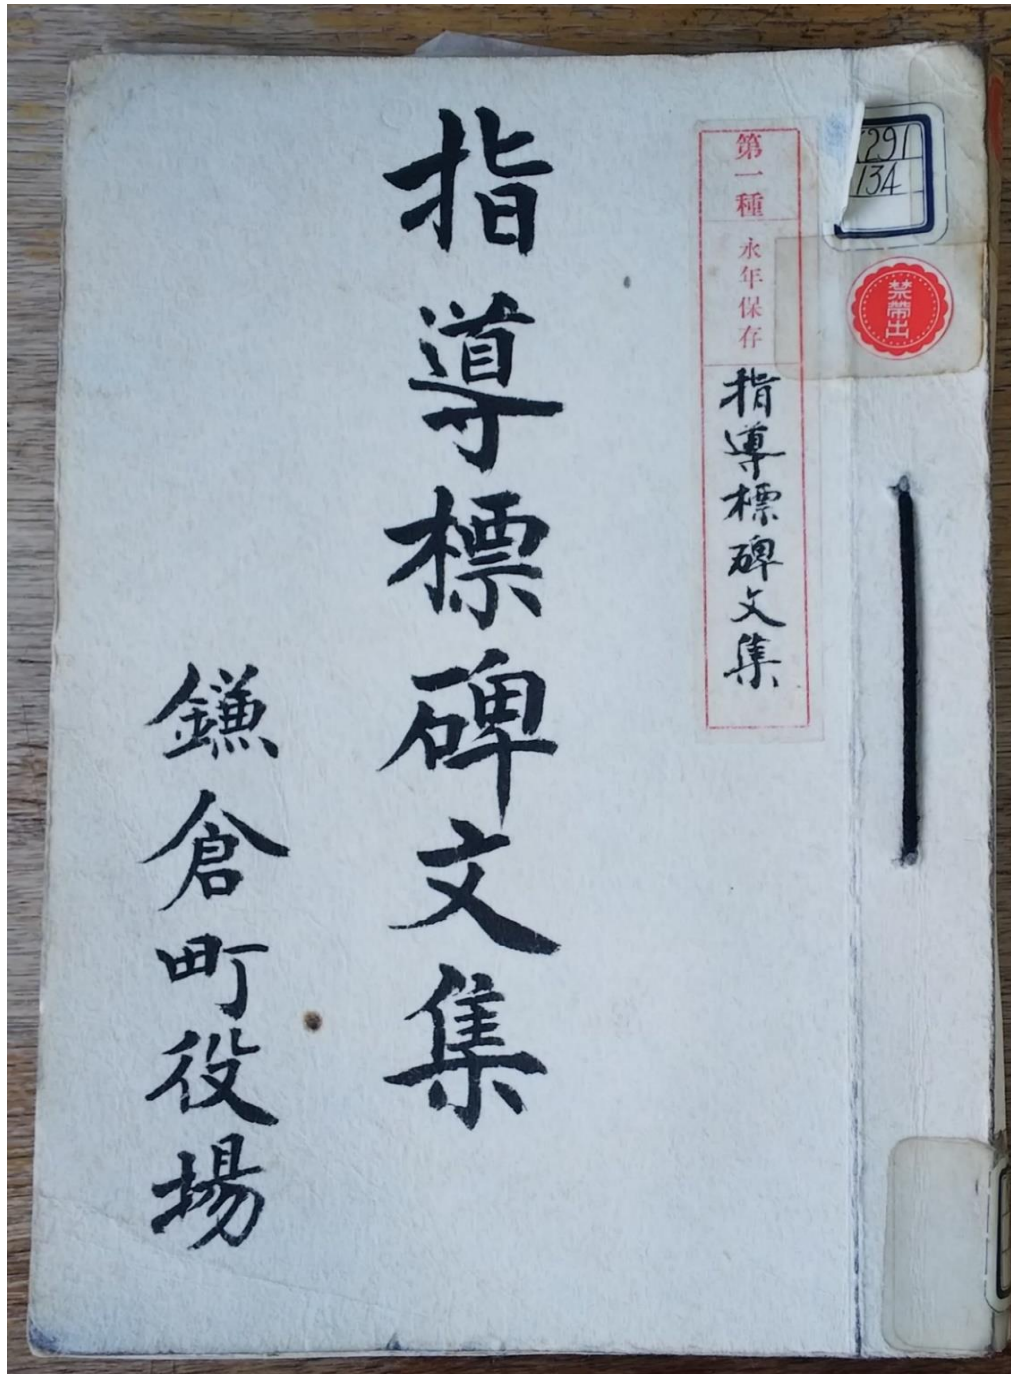 291
134
禁帯出
第一種 永年保存 指導標碑文集
指導標碑文集
鎌倉町役場